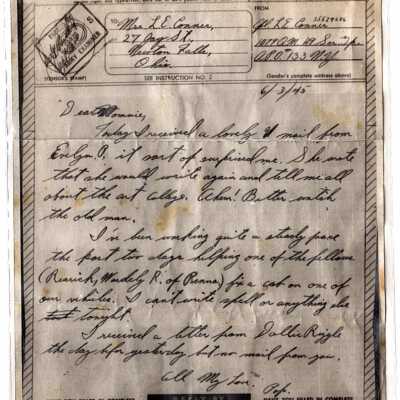 TO:
Mrs. L E Conner,
27 Jay St,
Newton Falls,
Ohio.
FROM
Cpl. L E Conner
A.P.O. 133 N.Y.
ARMY EXAMINER
(CENSOR'S STAMP)
SEE INSTRUCTION NO. 2
(Sender's complete address above)
6/3/45
Dear Mommie,
Today I received a lovely V mail from
Evelyn P, it sort of surprised me. She wrote
that she would write again and tell me all
about the art. Ahem! Better watch
the old man.
I've been working quite a steady pace
the past two days helping one of the fellows
(Rearick, of Penna) fix a cab on one of
our vehicles. I can't write spell or anything else
tonight.
I received a letter from Dollie
the day before yesterday but no mail from you.
All My Love.
Pop.
HAVE YOU FILLED IN COMPLETE
HAVE YOU FILLED IN COMPLETE